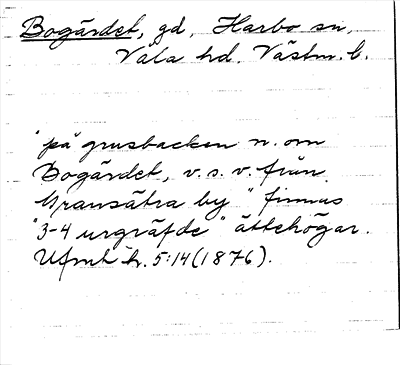 Bogärdet, gd, Harbo sn,
Våla hd. Västm. l.
"på grusbacken n. om
Bogärdet, v. s. v. från
Gransätra by" finnas
"3-4 urgräfde" ättehögar.
Ufmt h. 5:14 (1876).